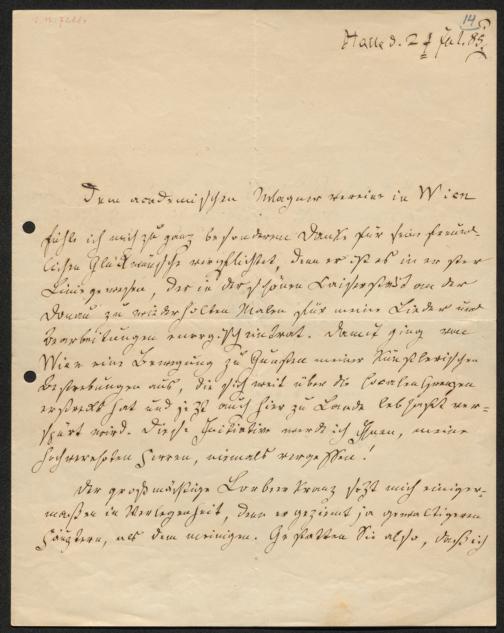 145
Halle d. 2 Jul. 85.
Dem academischen Wagnervereine in Wien
fühle ich mich zu ganz besonderem Danke für seine freund-
lichen Glückwünsche verpflichtet, denn er ist es in erster
Linie gewesen, der in der schönen Kaiserstadt an der
Donau zu wiederholten Malen für meine Lieder und
Bearbeitungen energisch eintrat. Damit ging von
Wien eine Bewegung zu Gunsten meiner künstlerischen
Bestrebungen aus, die sich weit über die localen Grenzen
erstreckt hat und jetzt auch hier zu Lande lebhaft ver-
spürt wird. Diese Initiative werde ich Ihnen, meine
hochverehrten Herren, niemals vergessen!
Der großmächtige Lorbeerkranz setzt mich einiger-
maßen in Verlegenheit, denn er geziemt ja gewaltigeren
Häuptern, als dem meinigen. Gestatten Sie also, daß ich